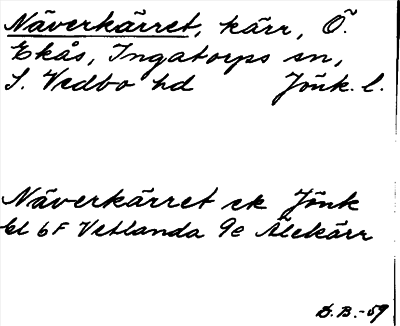 Näverkärret, kärr, Ö.
Ekås, Ingatorps sn,
S. Vedbo hd Jönk. l.
Näverkärret ek Jönk
bl 6F Vetlanda 9e Älekärr
D.B.-59